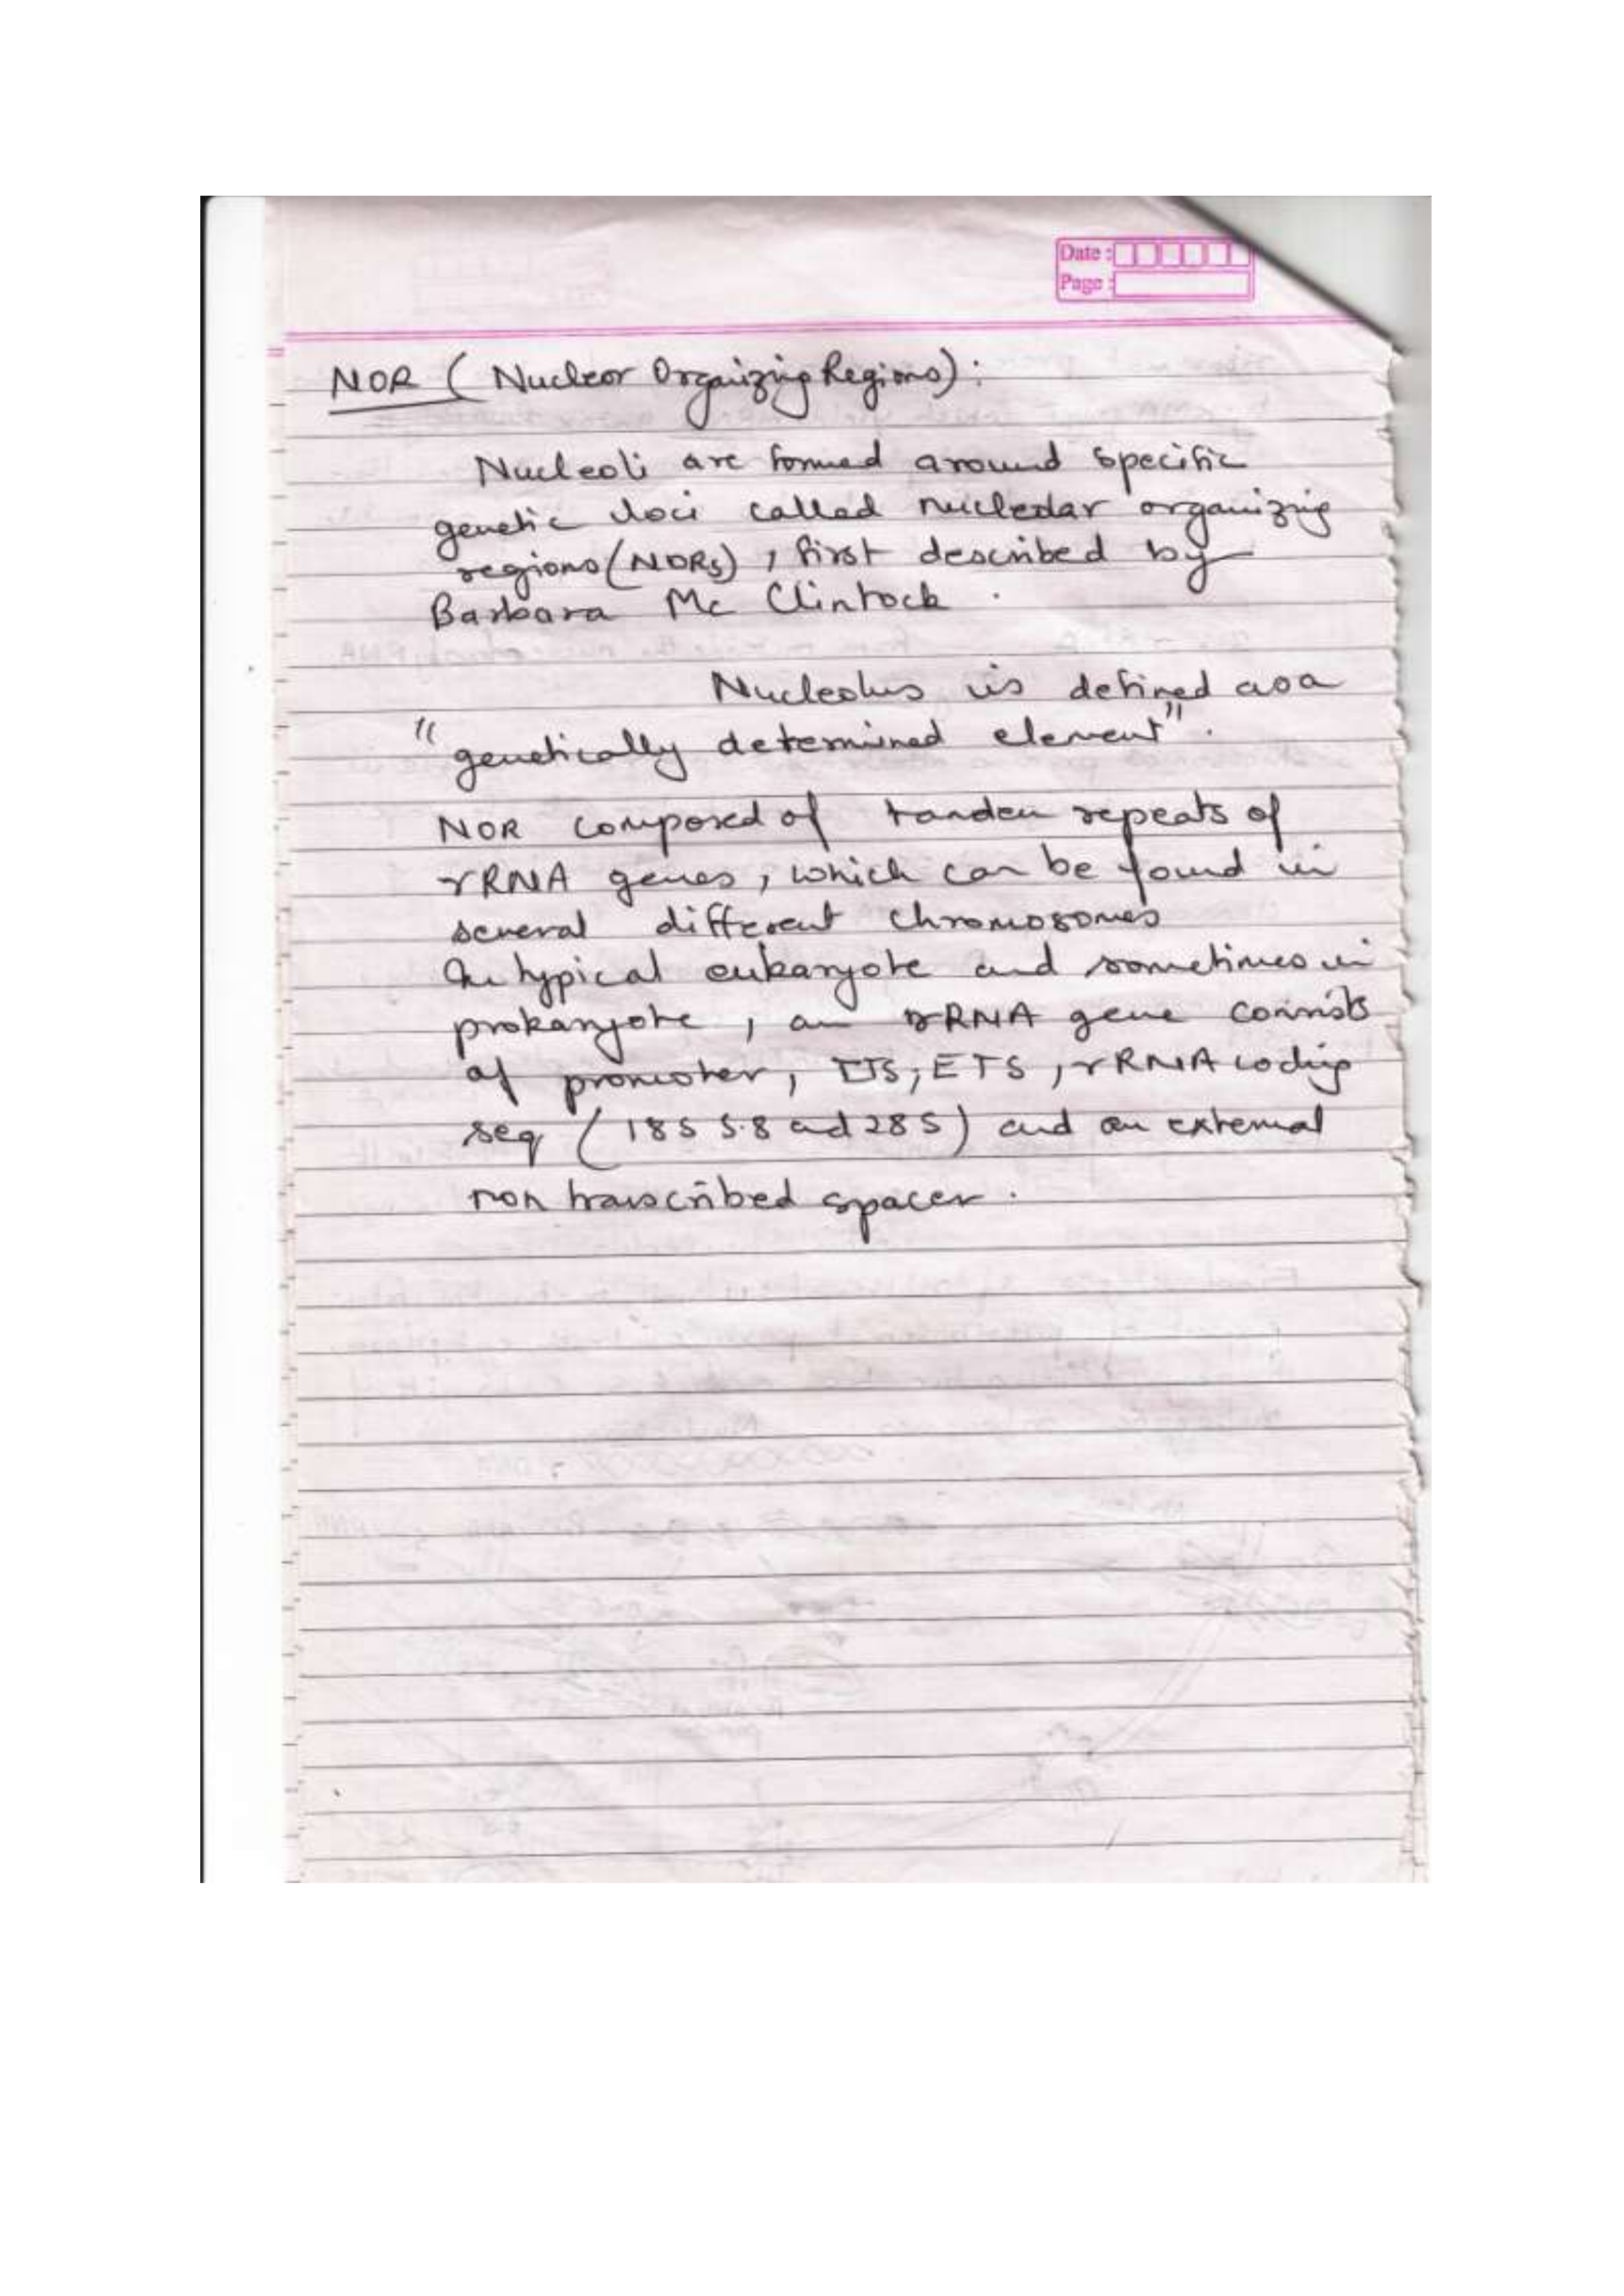 Date :
Page :
NOR ( Nucleor Organizing Regions) :
Nucleoli are formed around specific
genetic loci called nucleolar organizing
regions (NORs) , first described by
Barbara Mc Clintock .
Nucleolus is defined as a
" genetically determined element" .
NOR composed of tandem repeats of
rRNA genes , which can be found in
several different chromosomes
In typical eukaryote and sometimes in
prokaryote , an rRNA gene consists
of promoter , ITS , ETS , rRNA coding
seq ( 18S 5.8 and 28S ) and an external
non transcribed spacer .